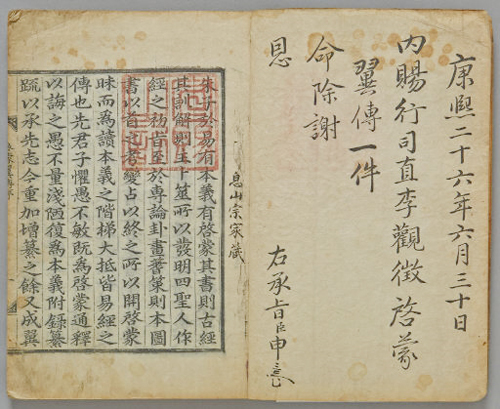 康熙二十六年六月三十日
內賜行司直李觀徵啓蒙
翼傳一件
命除謝
恩
右承旨臣申
息山宗家藏
朱子於易有本義有啓蒙其書則古經
其訓解則主卜筮所以發明四聖人作
經之初旨至於專論卦畫蓍策則本圖
書以首之考變占以終之所以開啓蒙
昧而爲讀本義之階梯大抵皆易經之
傳也先君子懼愚不敏旣爲啓蒙通釋
以誨之愚不量淺陋復爲本義附錄纂
疏以承先志今重加增纂之餘又成翼